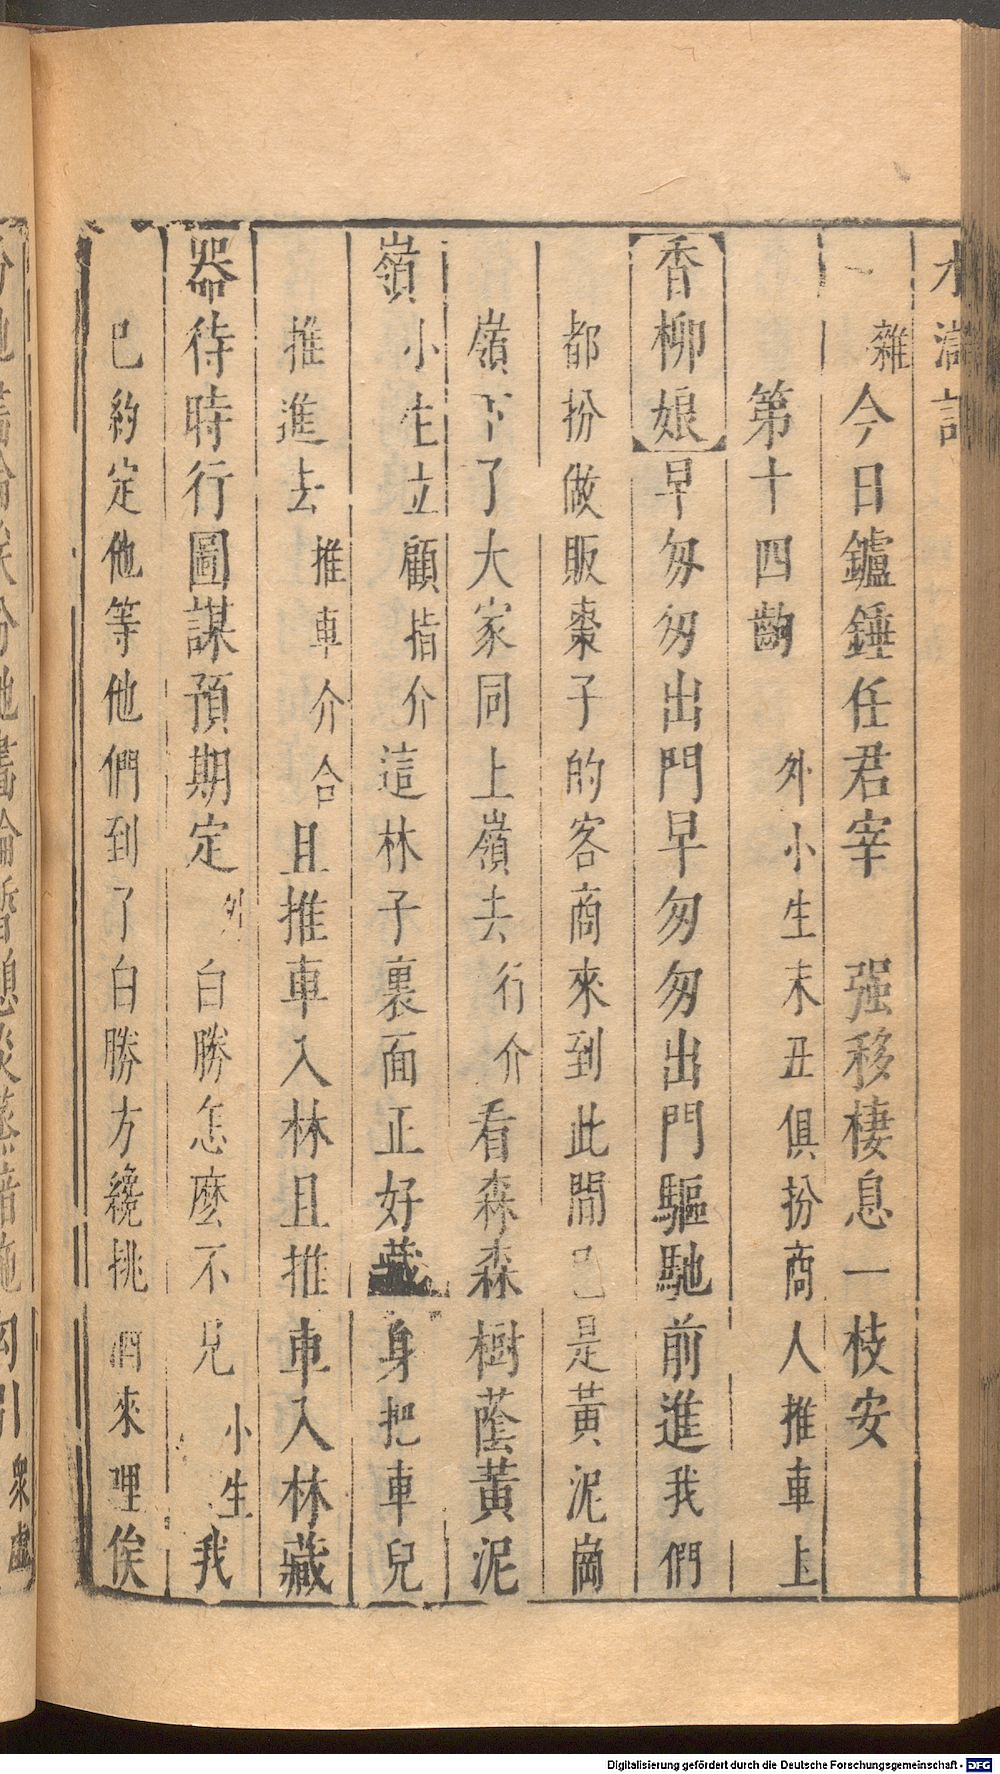 水滸記
雜今日鑪錘任君宰　强移棲息一枝安
第十四齣　外小生末丑俱扮商人推車上
香柳娘早匆匆出門早匆匆出門驅馳前進我們
都扮做販棗子的客商來到此間已是黃泥崗
嶺下了大家同上嶺去行介看森森森樹蔭黃泥
嶺小生立顧指介這林子裏面正好藏身把車兒
推進去推車介合且推車入林且推車入林藏
器待時行圖謀預期定外白勝怎麼不見小生我
已約定他等他們到了白勝方纔挑酒來哩俟
Digitalisierung gefördert durch die Deutsche Forschungsgemeinschaft - DFG